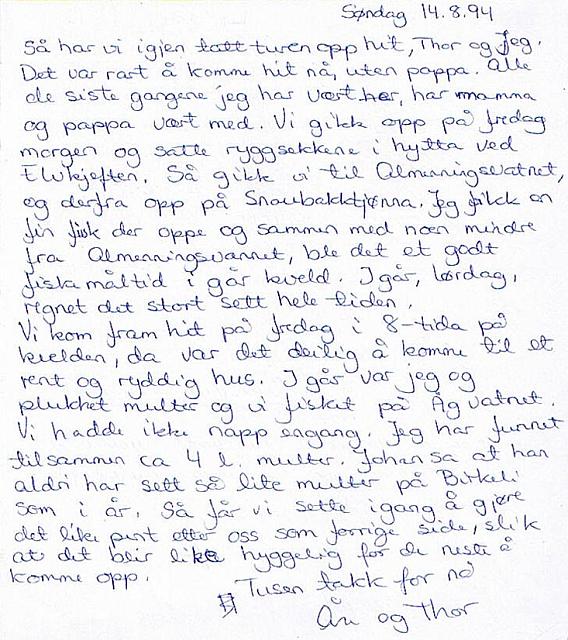 Søndag 14.8.94
Så har vi igjen tatt turen opp hit, Thor og Jeg.
Det var rart å komme hit nå, uten pappa. Alle
de siste gangene jeg har vært her, har mamma
og pappa vært med. Vi gikk opp på fredag
morgen og satte ryggsekkene i hytta ved
Elvkjeften. Så gikk vi til Almenningsvatnet,
og derfra opp på Snaubakktjønna. Jeg fikk en
fin fisk der oppe og sammen med noen mindre
fra Almenningsvannet, ble det et godt
fiskemåltid i går kveld. I går, lørdag,
regnet det stort sett hele tiden.
Vi kom fram hit på fredag i 8-tida på
kvelden, da var det deilig å komme til et
rent og ryddig hus. I går var jeg og
plukket multer og vi fisket på Ågvatnet.
Vi hadde ikke napp engang. Jeg har funnet
tilsammen ca 4 l. multer. Johan sa at han
aldri har sett så lite multer på Birkeli
som i år. Så får vi sette igang å gjøre
det like pent etter oss som forrige side, slik
at det blir like hyggelig for de neste å
komme opp.
Tusen takk for nå
og Thor